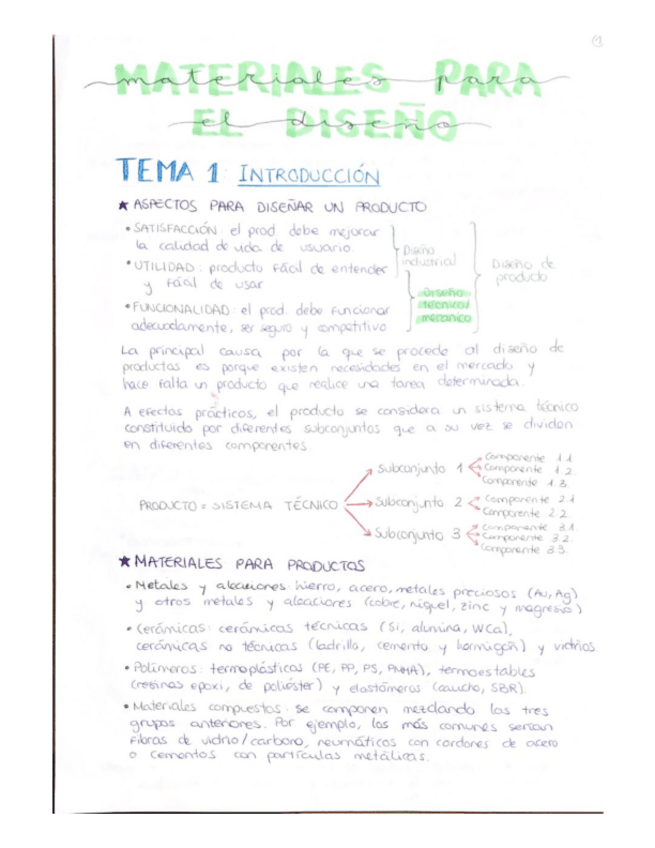 1
materiales para
el diseño
TEMA 1: INTRODUCCIÓN
★ ASPECTOS PARA DISEÑAR UN PRODUCTO
• SATISFACCIÓN: el prod. debe mejorar
la calidad de vida de usuario.
• UTILIDAD: producto fácil de entender
y fácil de usar
• FUNCIONALIDAD: el prod. debe funcionar
adecuadamente, ser seguro y competitivo
Diseño
industrial
Diseño
técnico/
mecánico
Diseño de
producto
La principal causa por la que se procede al diseño de
productos es porque existen necesidades en el mercado y
hace falta un producto que realice una tarea determinada.
A efectos prácticos, el producto se considera un sistema técnico
constituido por diferentes subconjuntos que a su vez se dividen
en diferentes componentes.
PRODUCTO = SISTEMA TÉCNICO
Subconjunto 1
Componente 1.1.
Componente 1.2.
Componente 1.3.
Subconjunto 2
Componente 2.1
Componente 2.2.
Subconjunto 3
Componente 3.1.
Componente 3.2.
Componente 3.3.
★ MATERIALES PARA PRODUCTOS
• Metales y aleaciones: hierro, acero, metales preciosos (Au, Ag)
y otros metales y aleaciones (cobre, níquel, zinc y magnesio)
• Cerámicas: cerámicas técnicas (Si, alúmina, WCa),
cerámicas no técnicas (ladrillo, cemento y hormigón) y vidrios.
• Polímeros: termoplásticos (PE, PP, PS, PMMA), termoestables
(resinas epoxi, de poliéster) y elastómeros (caucho, SBR).
• Materiales compuestos: se componen mezclando los tres
grupos anteriores. Por ejemplo, los más comunes serían
fibras de vidrio/carbono, neumáticos con cordones de acero
o cementos con partículas metálicas.